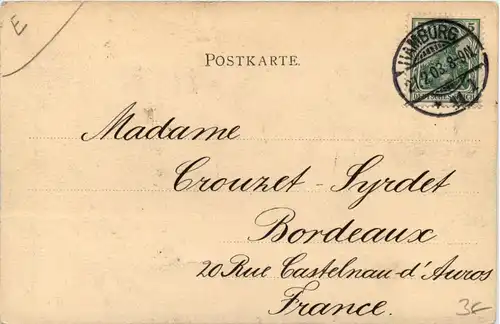 E
POSTKARTE.
HAMBURG
5
Madame
Crouzet-Syrdet
Bordeaux
20 Rue Castelnau-d'Auros
France.
3€